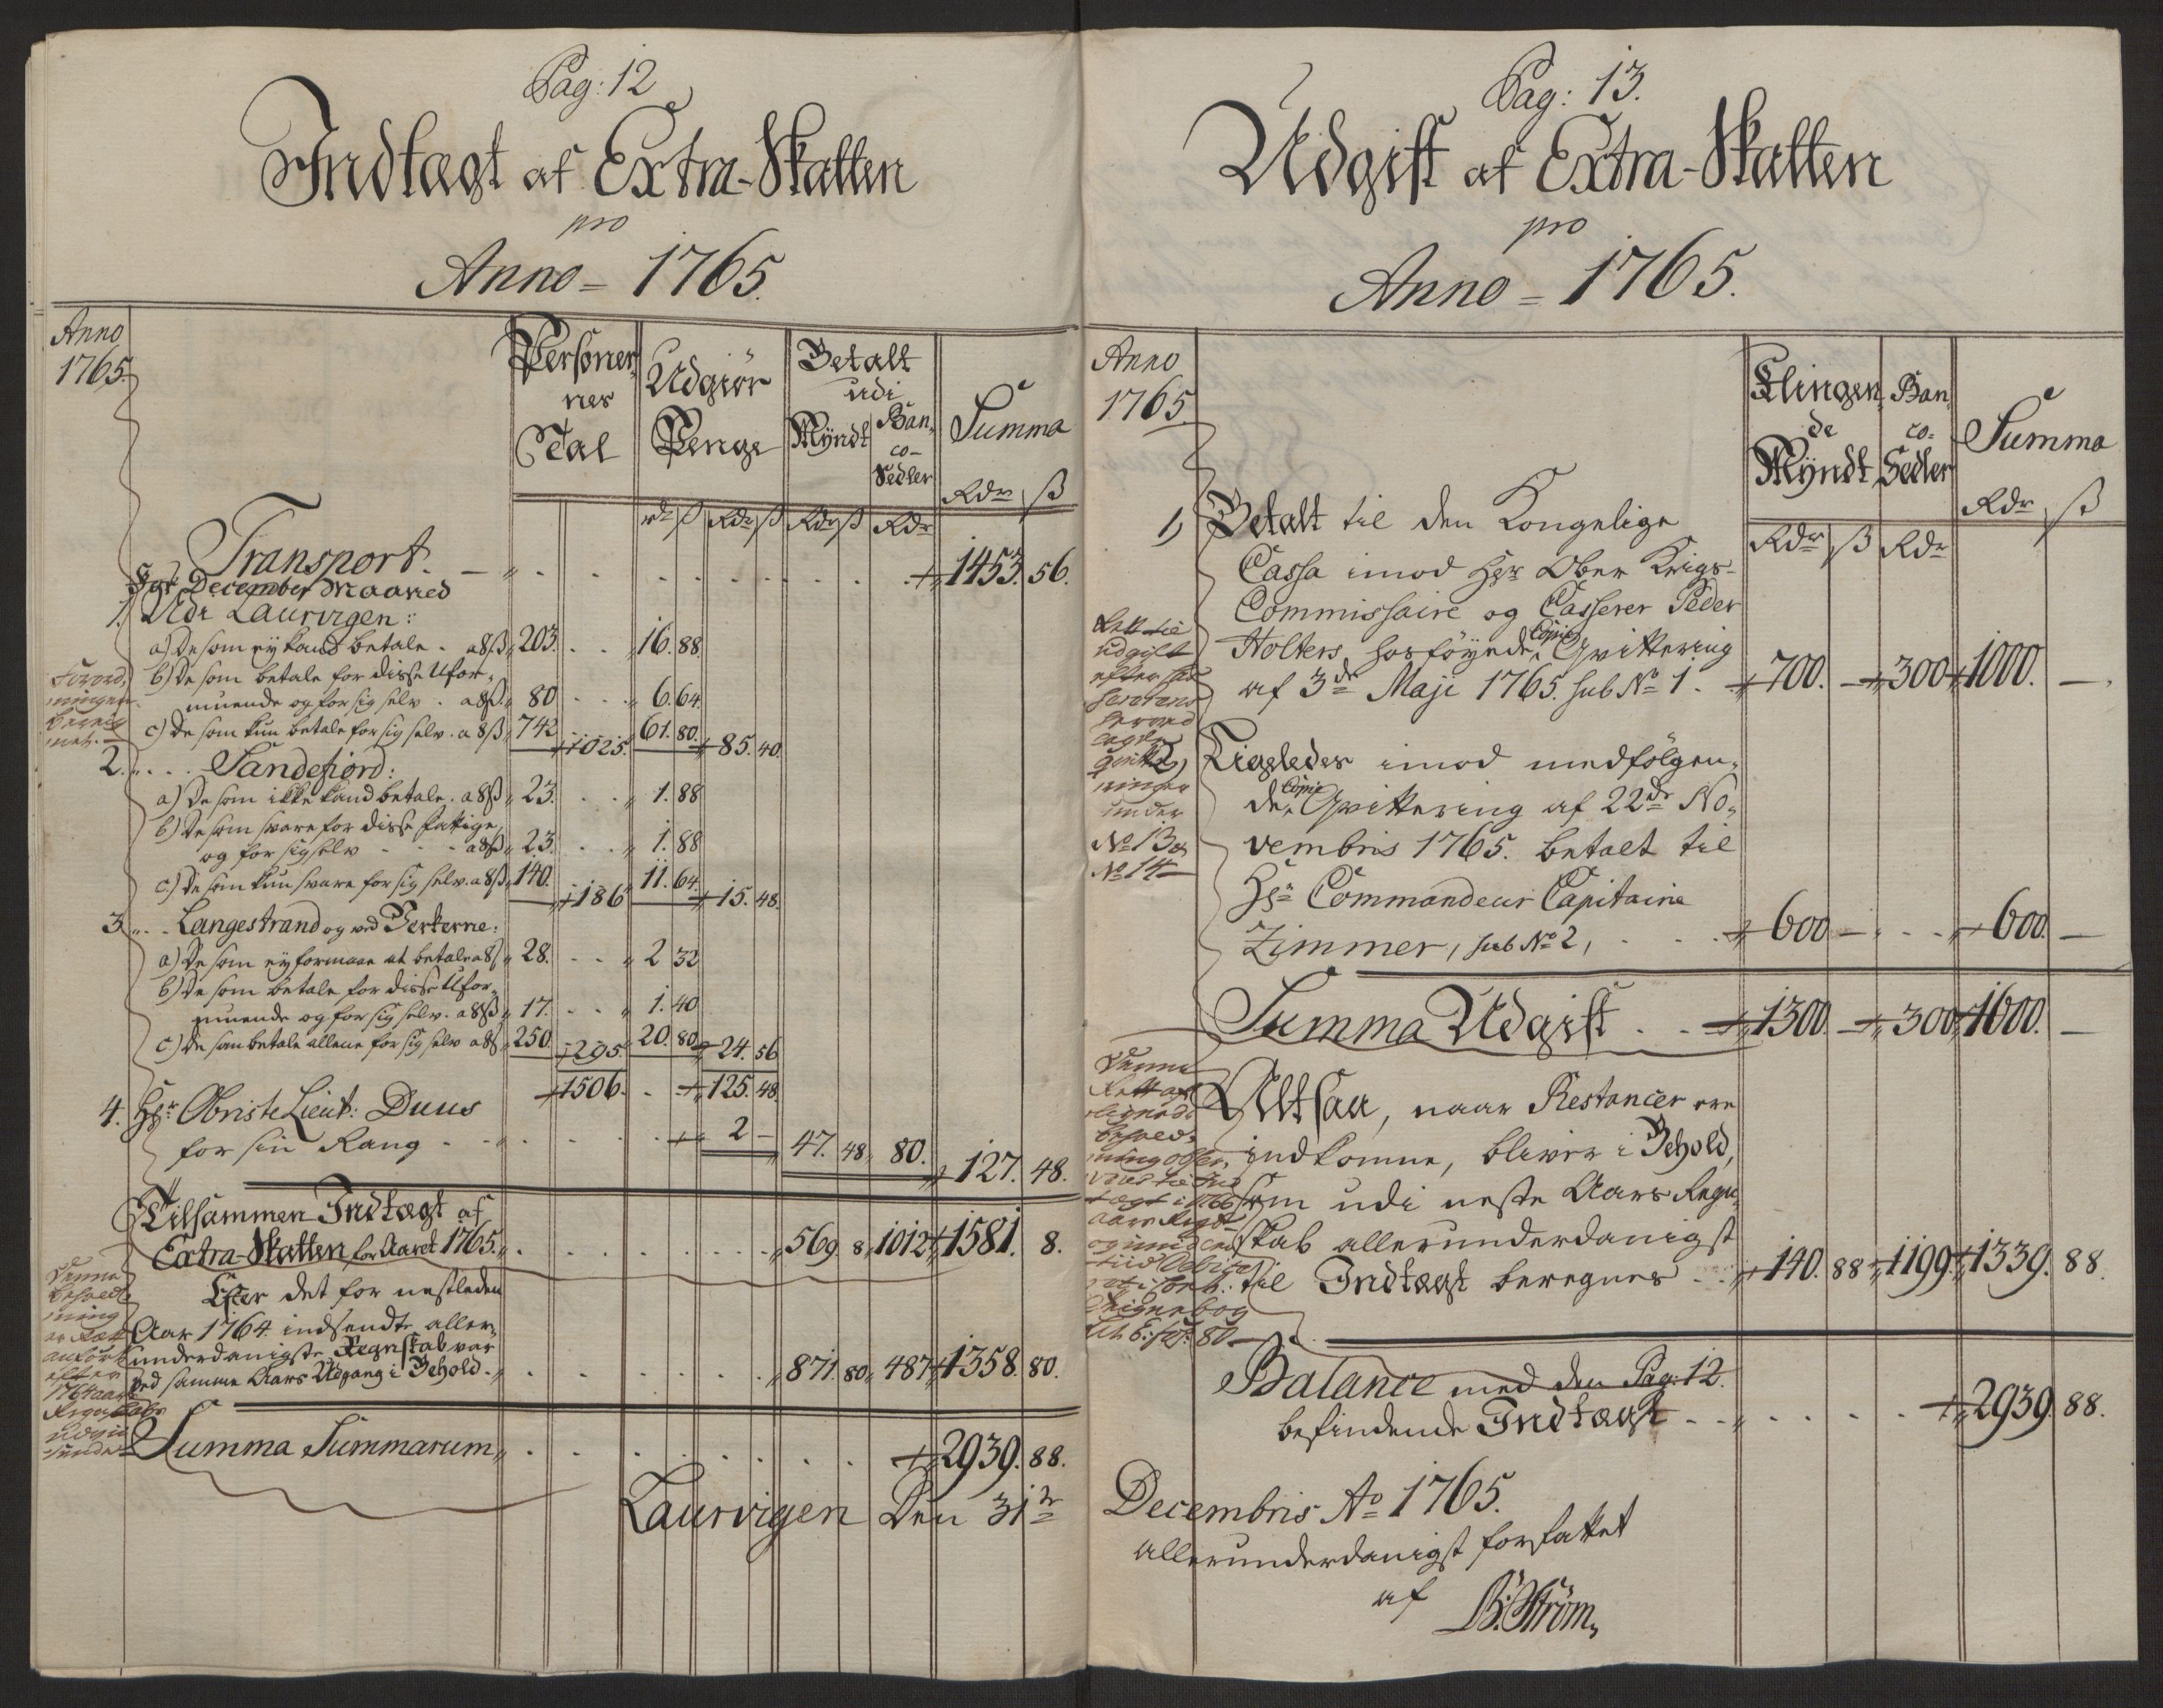 Pag: 12
Indtægt af Extra-Skatten
pro
Anno = 1765.
Anno
1765.
Personer,
nes
Tal
Udgiør
Penge
Betalt
udi
Myndt
Ban,
co-
Sedler
Summa
Rdr ß
rdr ß Rdr ß Rdr ß Rdr
Transport. 1453. 56.
For December Maaned
1. Udi Laurvigen:
a) De som ey kand betale. a 8 ß 203. 16. 88.
b) De som betale for disse Ufor,
muende og for sig selv. a 8 ß. 80 6. 64.
c) De som kun betale for sig selv. a 8 ß 742 1025. 61. 80. 85. 40.
2. Sandefiord:
a) De som ikke kand betale. a 8 ß 23. 1. 88
b) De som svare for disse fattige,
og for sig selv a 8 ß 23. 1. 88
c) De som kun svare for sig selv. a 8 ß 140. 186 11. 64. 15. 48.
3. Langestrand og ved Verkerne:
a) De som ey formaae at betale a 8 ß 28. 2 32
b) De som betale for disse Ufor,
muende og for sig selv. a 8 ß 17. 1. 40
c) De som betale allene for sig selv a 8 ß 250. 295. 20. 80. 24. 56
1506. 125. 48.
4. Hr Obriste Lieut: Duus
for sin Rang 2 – 47. 48. 80. 127. 48.
Tilsammen Indtægt af
Extra-Skatten for Aaret 1765. 569. 8. 1012 1581. 8.
Efter det for nestleden
Aar 1764. indsendte aller,
underdanigste Regnskab var
ved samme Aars Udgang i Behold. 871. 80. 487 1358. 80.
Summa Summarum 2939. 88.
Laurvigen Den 31te
Forord,
ningen
Denne
behold,
ning
er Rett
anført
efter
1764 aars
Regnskabs
Pag: 13.
Udgift af Extra-Skatten
pro
Anno = 1765.
Anno
1765
Klingen,
de
Myndt
Ban,
co=
Sedler
Summa
Rdr ß
Rdr ß Rdr
1) Betalt til den Kongelige
Cassa imod Hr Ober Krigs-
Commissaire og Casserer Peder
Holters hosføyede Copie Qvittering
af 3de Maji 1765. sub No 1. 700. – 300 1000. –
2) Ligeledes imod medfølgen,
de Copie Qvittering af 22de No,
vembris 1765. betalt til
Hr Commandeur Capitaine
Zimmer, sub No 2, 600 – 600. –
Summa Udgift 1300. – 300 1600. –
Altsaa, naar Restancer ere
indkomne, bliver i Behold,
som udi neste Aars Regn,
skab allerunderdanigst
til Indtægt beregnes 140. 88 1199. 1339. 88.
Balance med den Pag: 12.
befindende Indtægt 2939. 88.
Decembris Ao 1765.
allerunderdanigst forfattet
af B: Strøm,
Rett til
udgift
efter
under
No 13 og
No 14
Denne